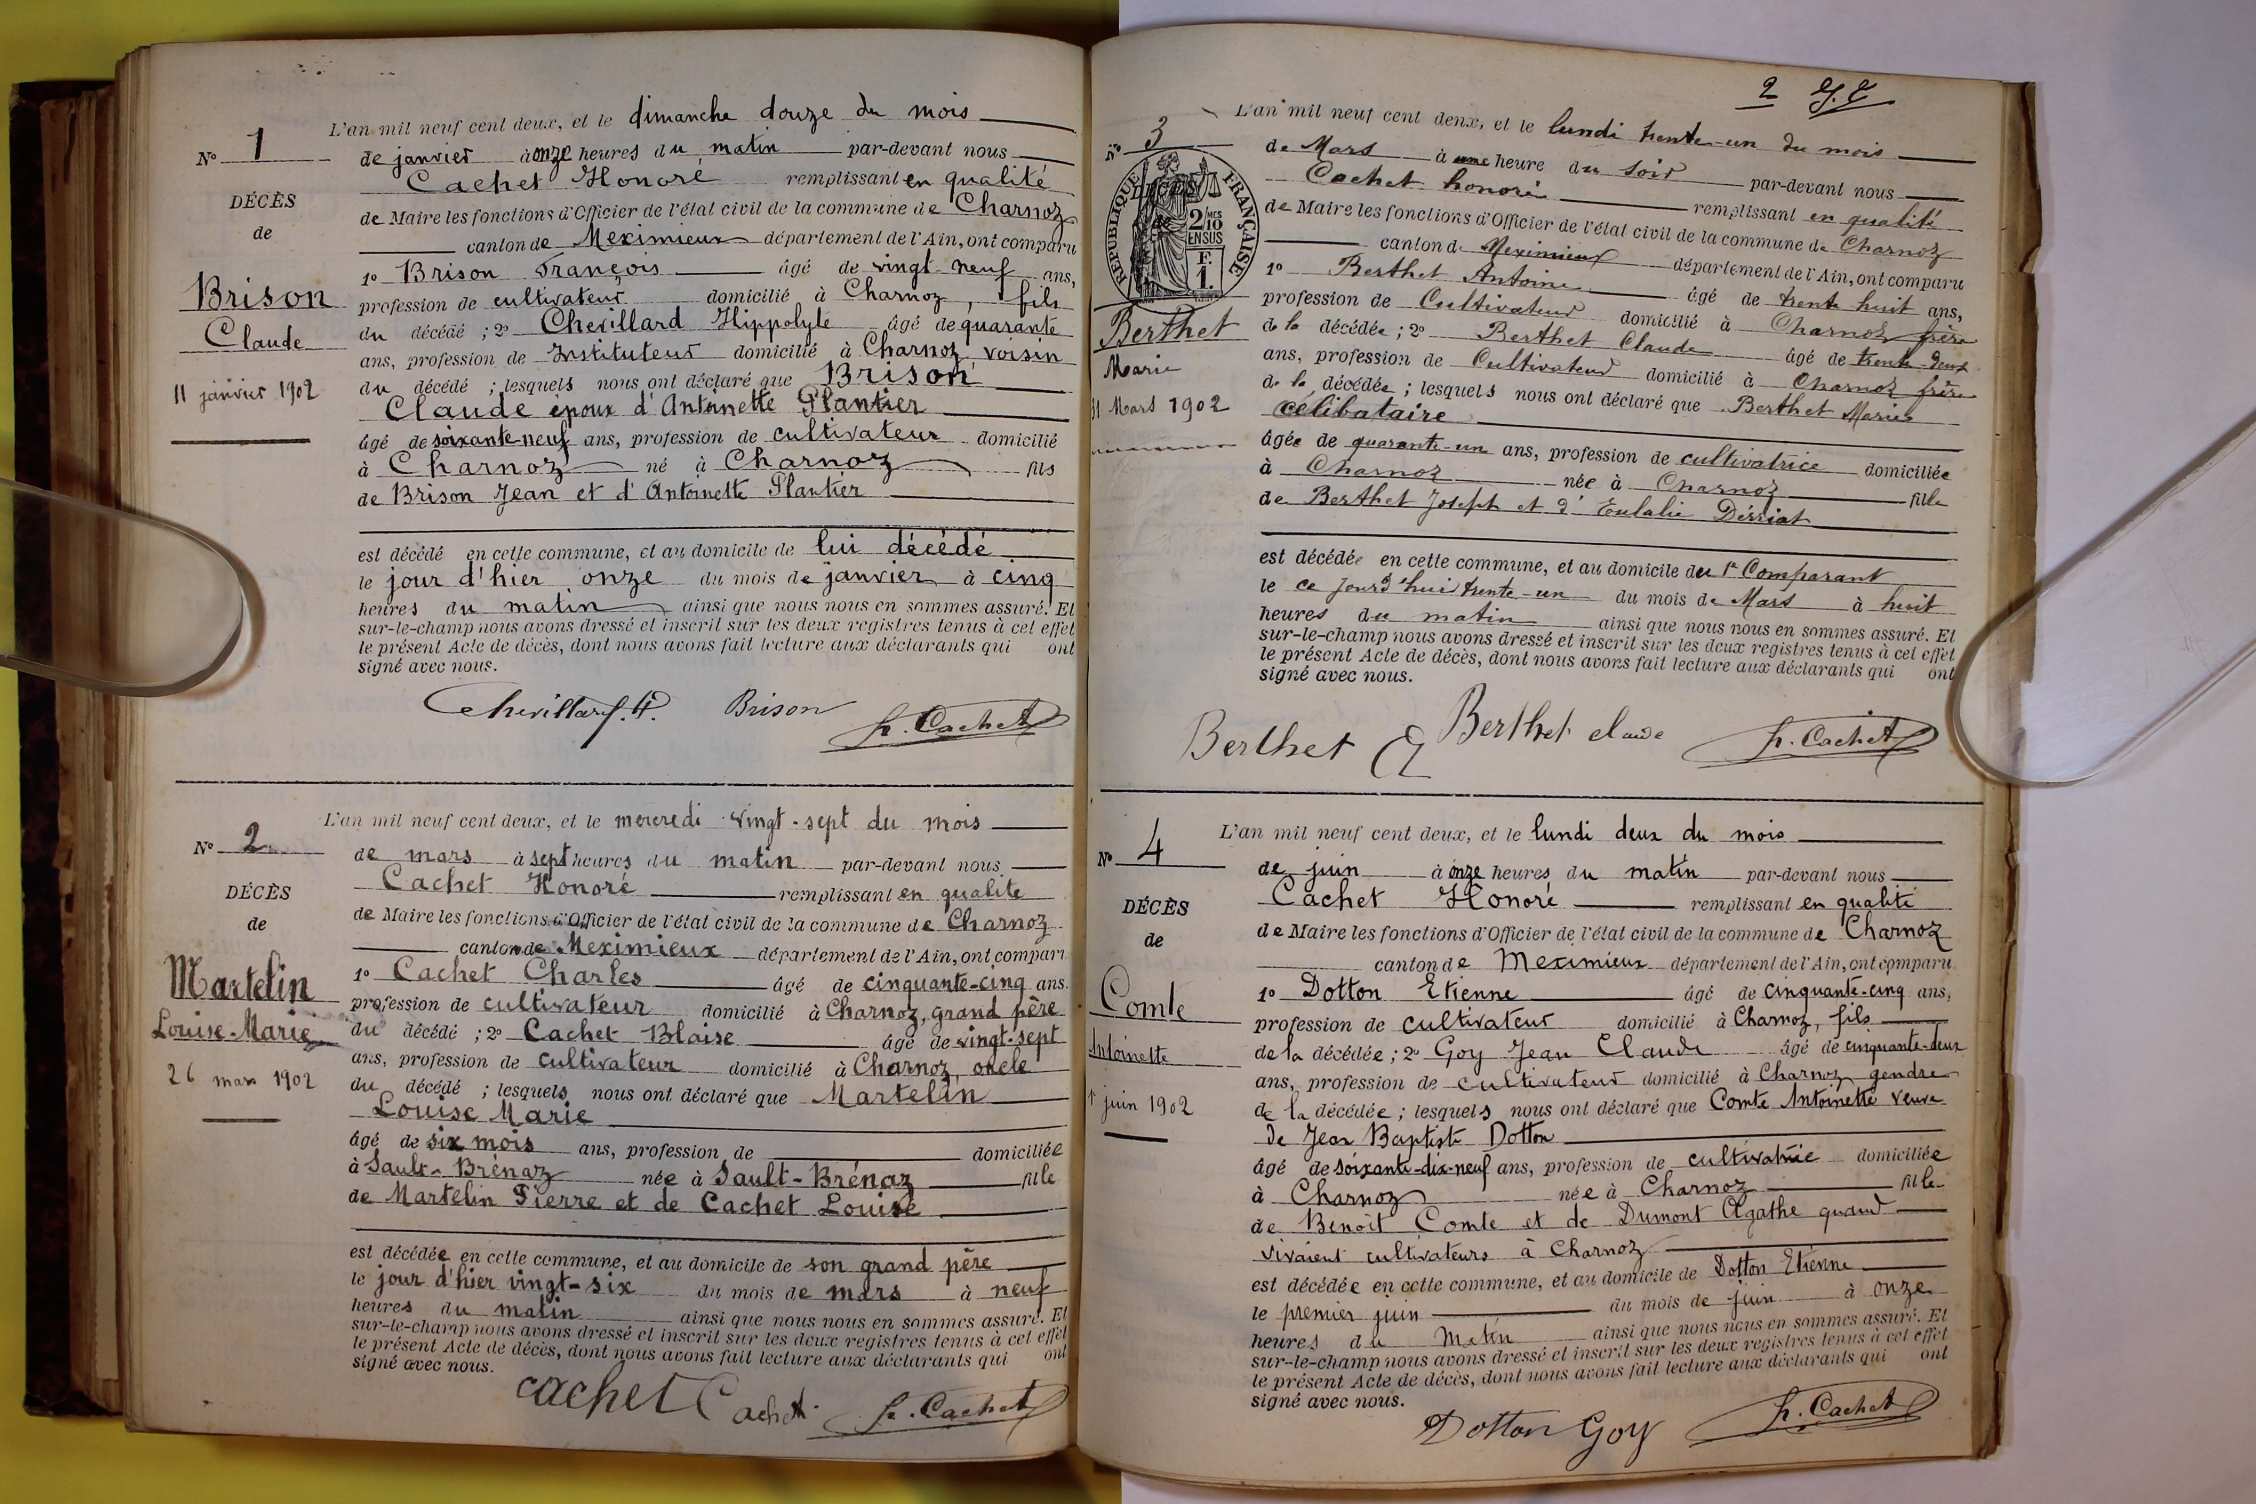 L'an mil neuf cent deux, et le dimanche douze du mois
N° 1
de janvier à onze heures du matin par-devant nous
Cachet Honoré remplissant en qualité
DÉCÈS
de Maire les fonctions d'Officier de l'état civil de la commune de Charnoz
de
canton de Meximieux département de l'Ain, ont comparu
1° Brison François âgé de vingt neuf ans,
Brison
profession de cultivateur domicilié à Charnoz, fils
Claude
du décédé ; 2° Chevillard Hippolyte âgé de quarante
ans, profession de Instituteur domicilié à Charnoz voisin
11 janvier 1902
du décédé ; lesquels nous ont déclaré que Brison
Claude époux d'Antoinette Plantier
âgé de soixante-neuf ans, profession de cultivateur domicilié
à Charnoz né à Charnoz fils
de Brison Jean et d'Antoinette Plantier
est décédé en cette commune, et au domicile de lui décédé
le jour d'hier onze du mois de janvier à cinq
heures du matin ainsi que nous nous en sommes assuré. Et
sur-le-champ nous avons dressé et inscrit sur les deux registres tenus à cet effet
le présent Acte de décès, dont nous avons fait lecture aux déclarants qui ont
signé avec nous.
Chevillard. H. Brison h. Cachet
L'an mil neuf cent deux, et le mercredi vingt-sept du mois
N° 2
de mars à sept heures du matin par-devant nous
Cachet Honoré remplissant en qualité
DÉCÈS
de Maire les fonctions d'Officier de l'état civil de la commune de Charnoz
de
canton de Meximieux département de l'Ain, ont comparu
1° Cachet Charles âgé de cinquante-cinq ans.
Martelin
profession de cultivateur domicilié à Charnoz, grand père
Louise-Marie
du décédé ; 2° Cachet Blaise âgé de vingt-sept
ans, profession de cultivateur domicilié à Charnoz, oncle
26 mars 1902
du décédé ; lesquels nous ont déclaré que Martelin
Louise Marie
âgé de six mois ans, profession de domiciliée
à Sault-Brénaz née à Sault-Brénaz fille
de Martelin Pierre et de Cachet Louise
est décédée en cette commune, et au domicile de son grand père
le jour d'hier vingt-six du mois de mars à neuf
heures du matin ainsi que nous nous en sommes assuré. Et
sur-le-champ nous avons dressé et inscrit sur les deux registres tenus à cet effet
le présent Acte de décès, dont nous avons fait lecture aux déclarants qui ont
signé avec nous.
cachet Cachet h. Cachet
2
L'an mil neuf cent deux, et le lundi trente-un du mois
N° 3
de Mars à une heure du soir par-devant nous
Cachet honoré remplissant en qualité
DÉCÈS
RÉPUBLIQUE FRANÇAISE
2/10 MES EN SUS
F. 1.
de Maire les fonctions d'Officier de l'état civil de la commune de Charnoz
canton de Meximieux département de l'Ain, ont comparu
1° Berthet Antoine âgé de trente huit ans,
Berthet
profession de Cultivateur domicilié à Charnoz frère
Marie
de la décédée ; 2° Berthet Claude âgé de trente-deux
ans, profession de Cultivateur domicilié à Charnoz frère
31 Mars 1902
de la décédée ; lesquels nous ont déclaré que Berthet Marie
célibataire
âgée de quarante-un ans, profession de cultivatrice domiciliée
à Charnoz née à Charnoz fille
de Berthet Joseph et d'Eulalie Dérriat
est décédée en cette commune, et au domicile du 1er Comparant
le ce jourd'hui trente-un du mois de Mars à huit
heures du matin ainsi que nous nous en sommes assuré. Et
sur-le-champ nous avons dressé et inscrit sur les deux registres tenus à cet effet
le présent Acte de décès, dont nous avons fait lecture aux déclarants qui ont
signé avec nous.
Berthet A Berthet claude h. Cachet
L'an mil neuf cent deux, et le lundi deux du mois
N° 4
de juin à onze heures du matin par-devant nous
Cachet Honoré remplissant en qualité
DÉCÈS
de Maire les fonctions d'Officier de l'état civil de la commune de Charnoz
de
canton de Meximieux département de l'Ain, ont comparu
1° Dotton Etienne âgé de cinquante-cinq ans,
Comte
profession de cultivateur domicilié à Charnoz, fils
Antoinette
de la décédée ; 2° Goy Jean Claude âgé de cinquante-deux
ans, profession de cultivateur domicilié à Charnoz gendre
1er juin 1902
de la décédée ; lesquels nous ont déclaré que Comte Antoinette veuve
de Jean Baptiste Dotton
âgé de soixante-dix-neuf ans, profession de cultivatrice domiciliée
à Charnoz née à Charnoz fille
de Benoit Comte et de Dumont Agathe quand
vivaient cultivateurs à Charnoz
est décédée en cette commune, et au domicile de Dotton Etienne
le premier juin du mois de juin à onze
heures du matin ainsi que nous nous en sommes assuré. Et
sur-le-champ nous avons dressé et inscrit sur les deux registres tenus à cet effet
le présent Acte de décès, dont nous avons fait lecture aux déclarants qui ont
signé avec nous.
Dotton Goy h. Cachet